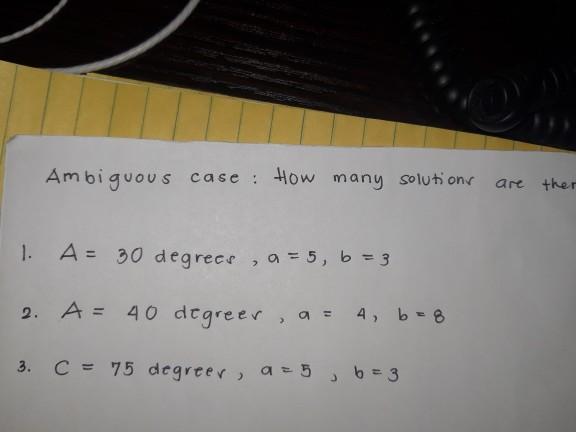 Ambiguous case : How many solutions are
1. A = 30 degrees , a = 5, b = 3
2. A = 40 degrees , a = 4, b = 8
3. C = 75 degrees , a = 5 , b = 3